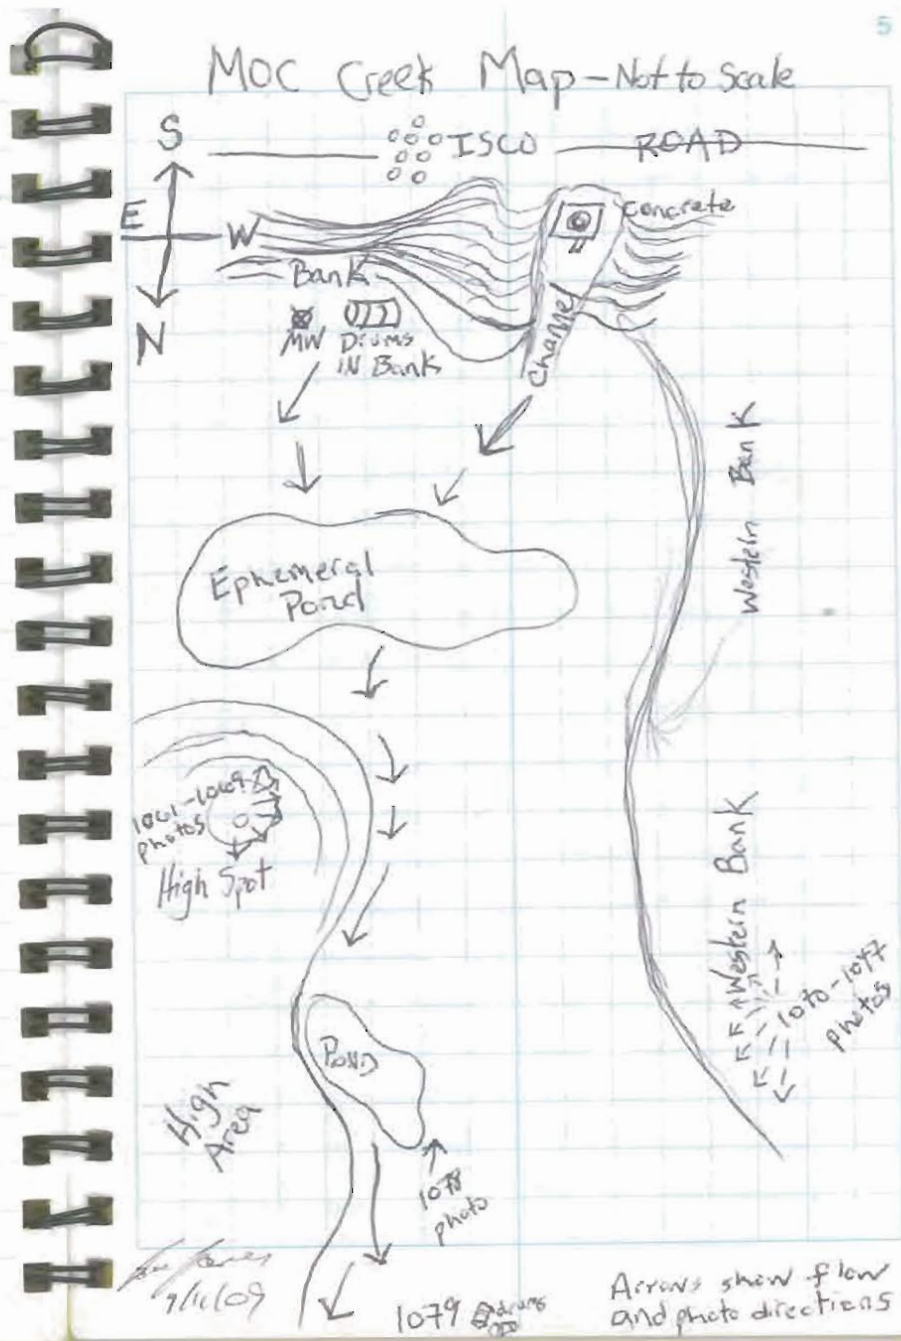 5
MOC Creek Map - Not to Scale
S
ISCO
ROAD
E
W
N
Concrete
Bank
MW
Drums
IN Bank
Channel
Western Bank
Ephemeral
Pond
1061-1069
photos
High Spot
Western Bank
1070-1077
photos
Pond
High
Area
1078
photo
1079
drums
Arrows show flow
and photo directions